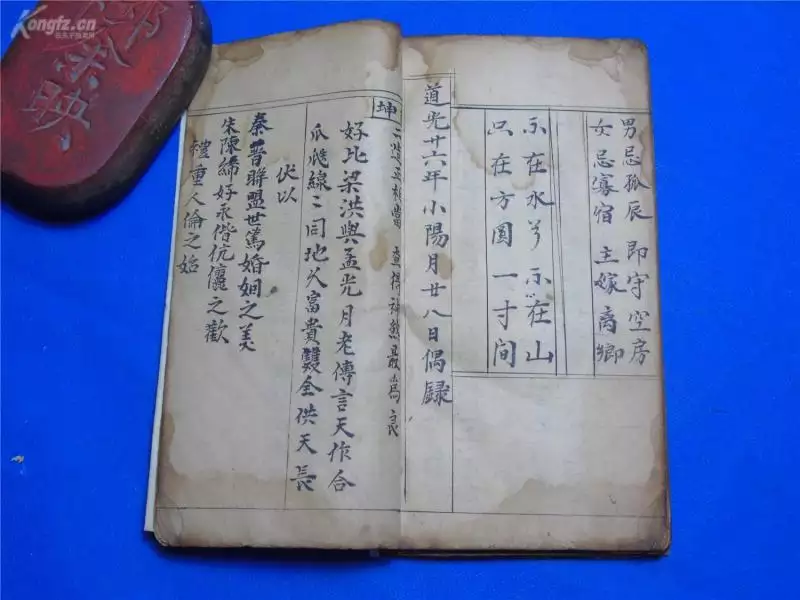 Kongfz.cn
男忌孤辰 即守空房
女忌寡宿 主嫁离鄉
不在水兮不在山
只在方圓一寸间
道光廿六年小陽月廿八日偶録
坤
好比梁洪與孟光月老傳言天作合
瓜瓞綿〻同地久富貴雙全供天長
伏以
秦晉聯盟世篤婚姻之美
朱陳締好永偕伉儷之歡
禮重人倫之始